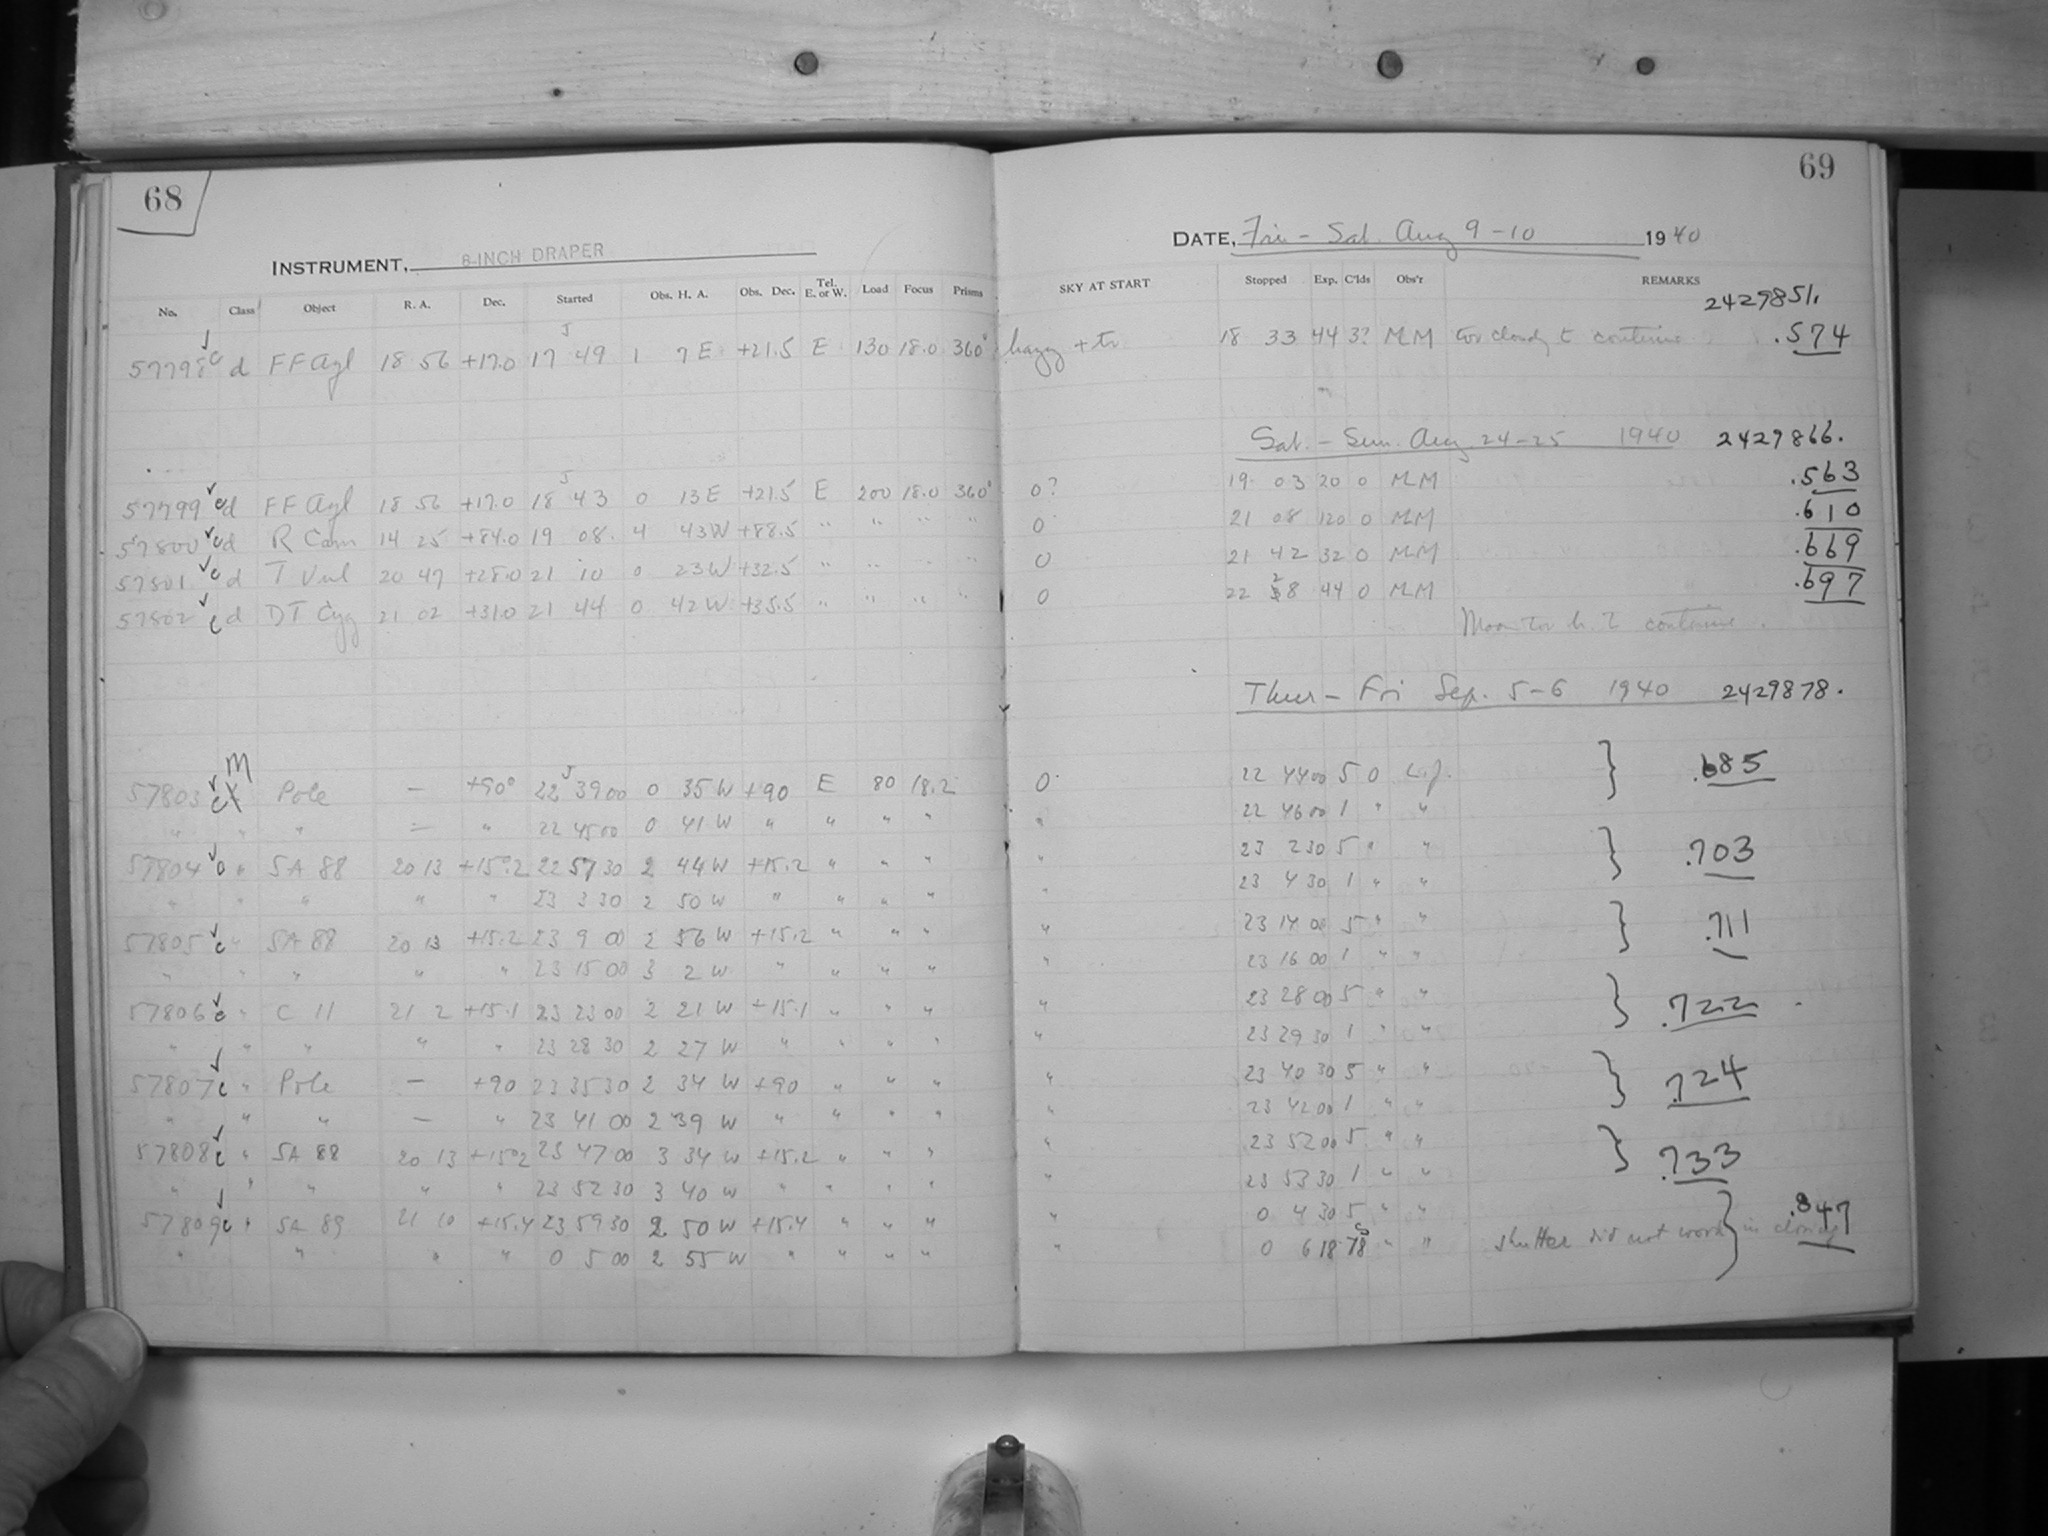 68
INSTRUMENT, 8-INCH DRAPER
No. Class Object R. A. Dec. Started Obs. H. A. Obs. Dec. Tel. E. or W. Load Focus Prisms
57798 c d FF Aql 18 56 +17.0 17 49 1 7 E +21.5 E 130 18.0 360°
57799 c d FF Aql 18 56 +17.0 18 43 0 13 E +21.5 E 200 18.0 360°
57800 c d R Cam 14 25 +84.0 19 08 4 43 W +88.5 " " " "
57801 c d T Vul 20 47 +28.0 21 10 0 23 W +32.5 " " " "
57802 c d DT Cyg 21 02 +31.0 21 44 0 42 W +35.5 " " " "
m
57803 c Pole — +90° 22 39 00 0 35 W +90 E 80 18.2
" " " — " 22 45 00 0 41 W " " " "
57804 c " SA 88 20 13 +15°.2 22 57 30 2 44 W +15.2 " " "
" " " " " 23 3 30 2 50 W " " " "
57805 c " SA 88 20 13 +15.2 23 9 00 2 56 W +15.2 " " "
" " " " " 23 15 00 3 2 W " " " "
57806 c " C 11 21 2 +15.1 23 23 00 2 21 W +15.1 " " "
" " " " " 23 28 30 2 27 W " " " "
57807 c " Pole — +90 23 35 30 2 34 W +90 " " "
" " " — " 23 41 00 2 39 W " " " "
57808 c " SA 88 20 13 +15°2 23 47 00 3 34 W +15.2 " " "
" " " " " 23 52 30 3 40 W " " " "
57809 c " SA 89 21 10 +15.4 23 59 30 2 50 W +15.4 " " "
" " " " 0 5 00 2 55 W " " " "
69
DATE, Fri - Sat. Aug 9 - 10 1940
SKY AT START Stopped Exp. C'lds Obs'r REMARKS
2429851.
hazy + 18 33 44 3? MM too cloudy to continue .574
Sat. - Sun. Aug 24-25 1940 2429866.
0? 19 03 20 0 MM .563
0 21 08 120 0 MM .610
0 21 42 32 0 MM .669
0 22 28 44 0 MM .697
Moon continue.
Thur - Fri Sep. 5-6 1940 2429878.
0 22 44 00 5 0 } .685
" 22 46 00 1 " "
" 23 2 30 5 " " } .703
" 23 4 30 1 " "
" 23 14 00 5 " " } .711
" 23 16 00 1 " "
" 23 28 00 5 " " } .722
" 23 29 30 1 " "
" 23 40 30 5 " " } .724
" 23 42 00 1 " "
" 23 52 00 5 " " } .733
" 23 53 30 1 " "
" 0 4 30 5 " " } .847
" 0 6 18 78s " " shutter did not work in closing